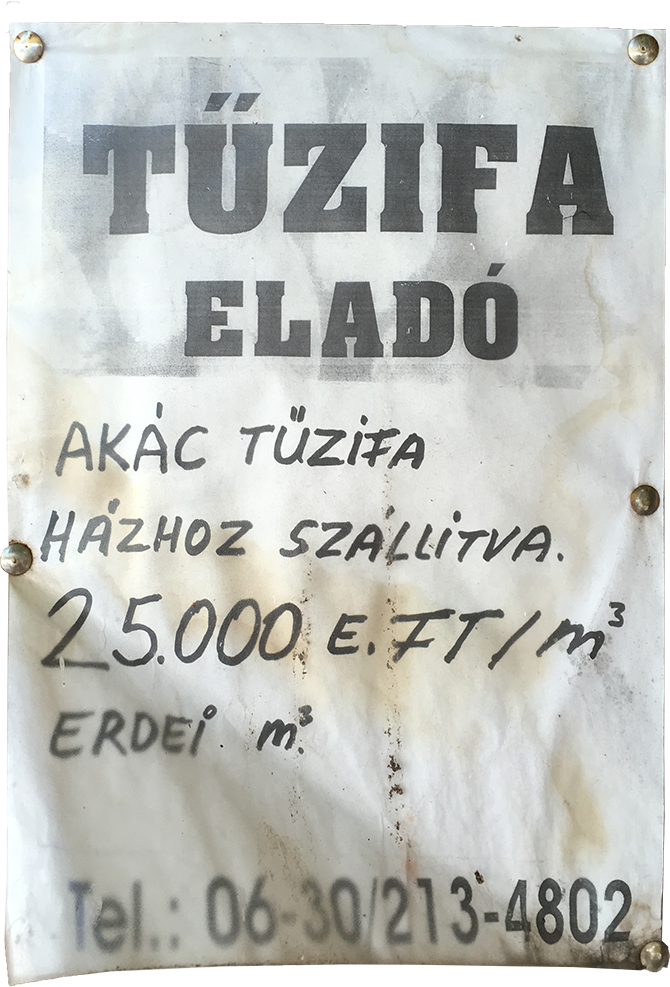 TŰZIFA
ELADÓ
AKÁC TŰZIFA
HÁZHOZ SZÁLLITVA.
25.000 E.FT/m³
ERDEI m³.
Tel.: 06-30/213-4802